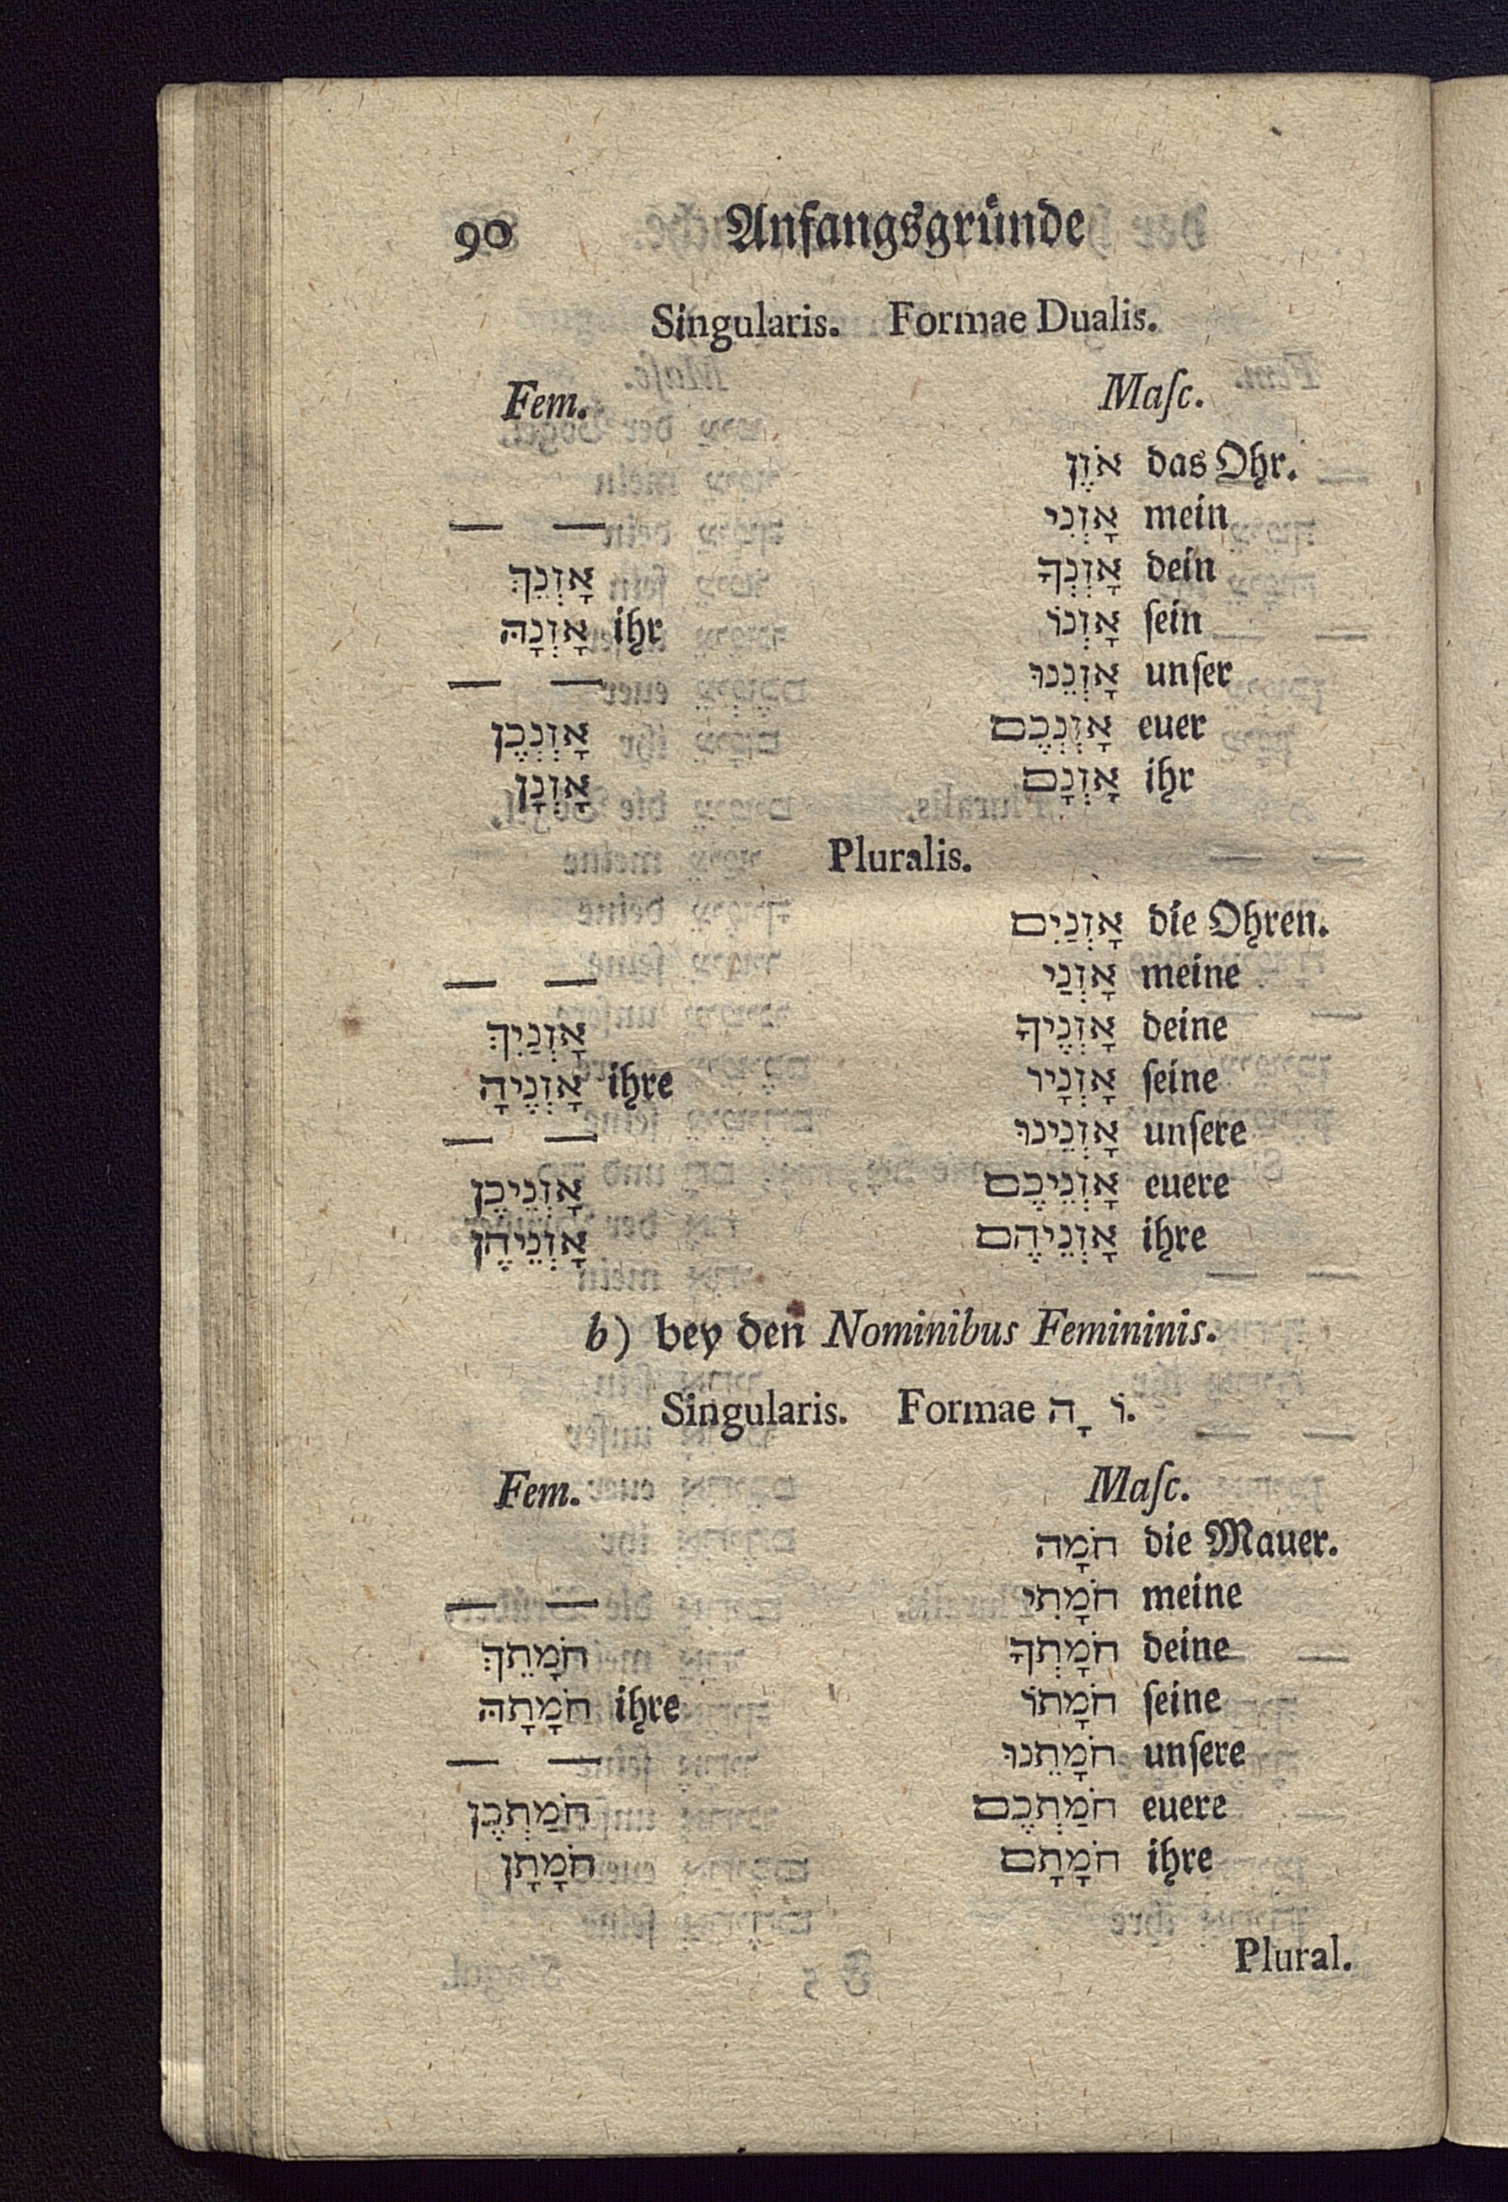 90 Anfangsgründe
Singularis. Formae Dualis.
Fem. Maſc.
אֹזֶן das Ohr.
— — אָזְנִי mein
אָזְנֵךְ אָזְנְךָ dein
אָזְנָהּ ihr אָזְנוֹ ſein
— — אָזְנֵנוּ unſer
אָזְנְכֶן אָזְנְכֶם euer
אָזְנָן אָזְנָם ihr
Pluralis.
אָזְנַיִם die Ohren.
— — אָזְנַי meine
אָזְנַיִךְ אָזְנֶיךָ deine
אָזְנֶיהָ ihre אָזְנָיו ſeine
— — אָזְנֵינוּ unſere
אָזְנֵיכֶן אָזְנֵיכֶם euere
אָזְנֵיהֶן אָזְנֵיהֶם ihre
b) bey den Nominibus Femininis.
Singularis. Formae וֹ ָה.
Fem. Maſc.
חֹמָה die Mauer.
— — חֹמָתִי meine
חֹמָתֵךְ חֹמָתְךָ deine
חֹמָתָהּ ihre חֹמָתוֹ ſeine
— — חֹמָתֵנוּ unſere
חֹמַתְכֶן חֹמַתְכֶם euere
חֹמָתָן חֹמָתָם ihre
Plural.